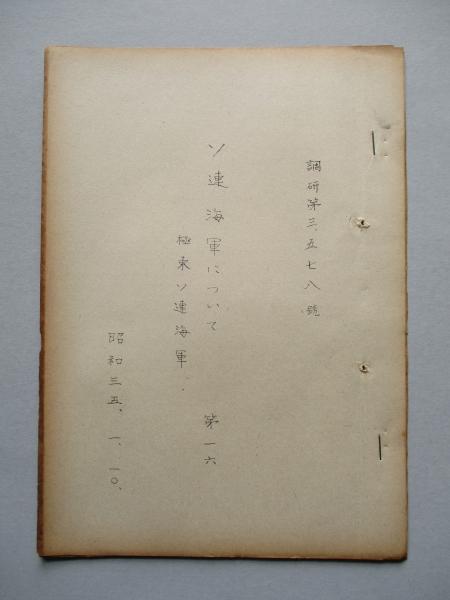 調研第三、五七八號
ソ連海軍について 第一六
極東ソ連海軍.
昭和三五、一、一〇、